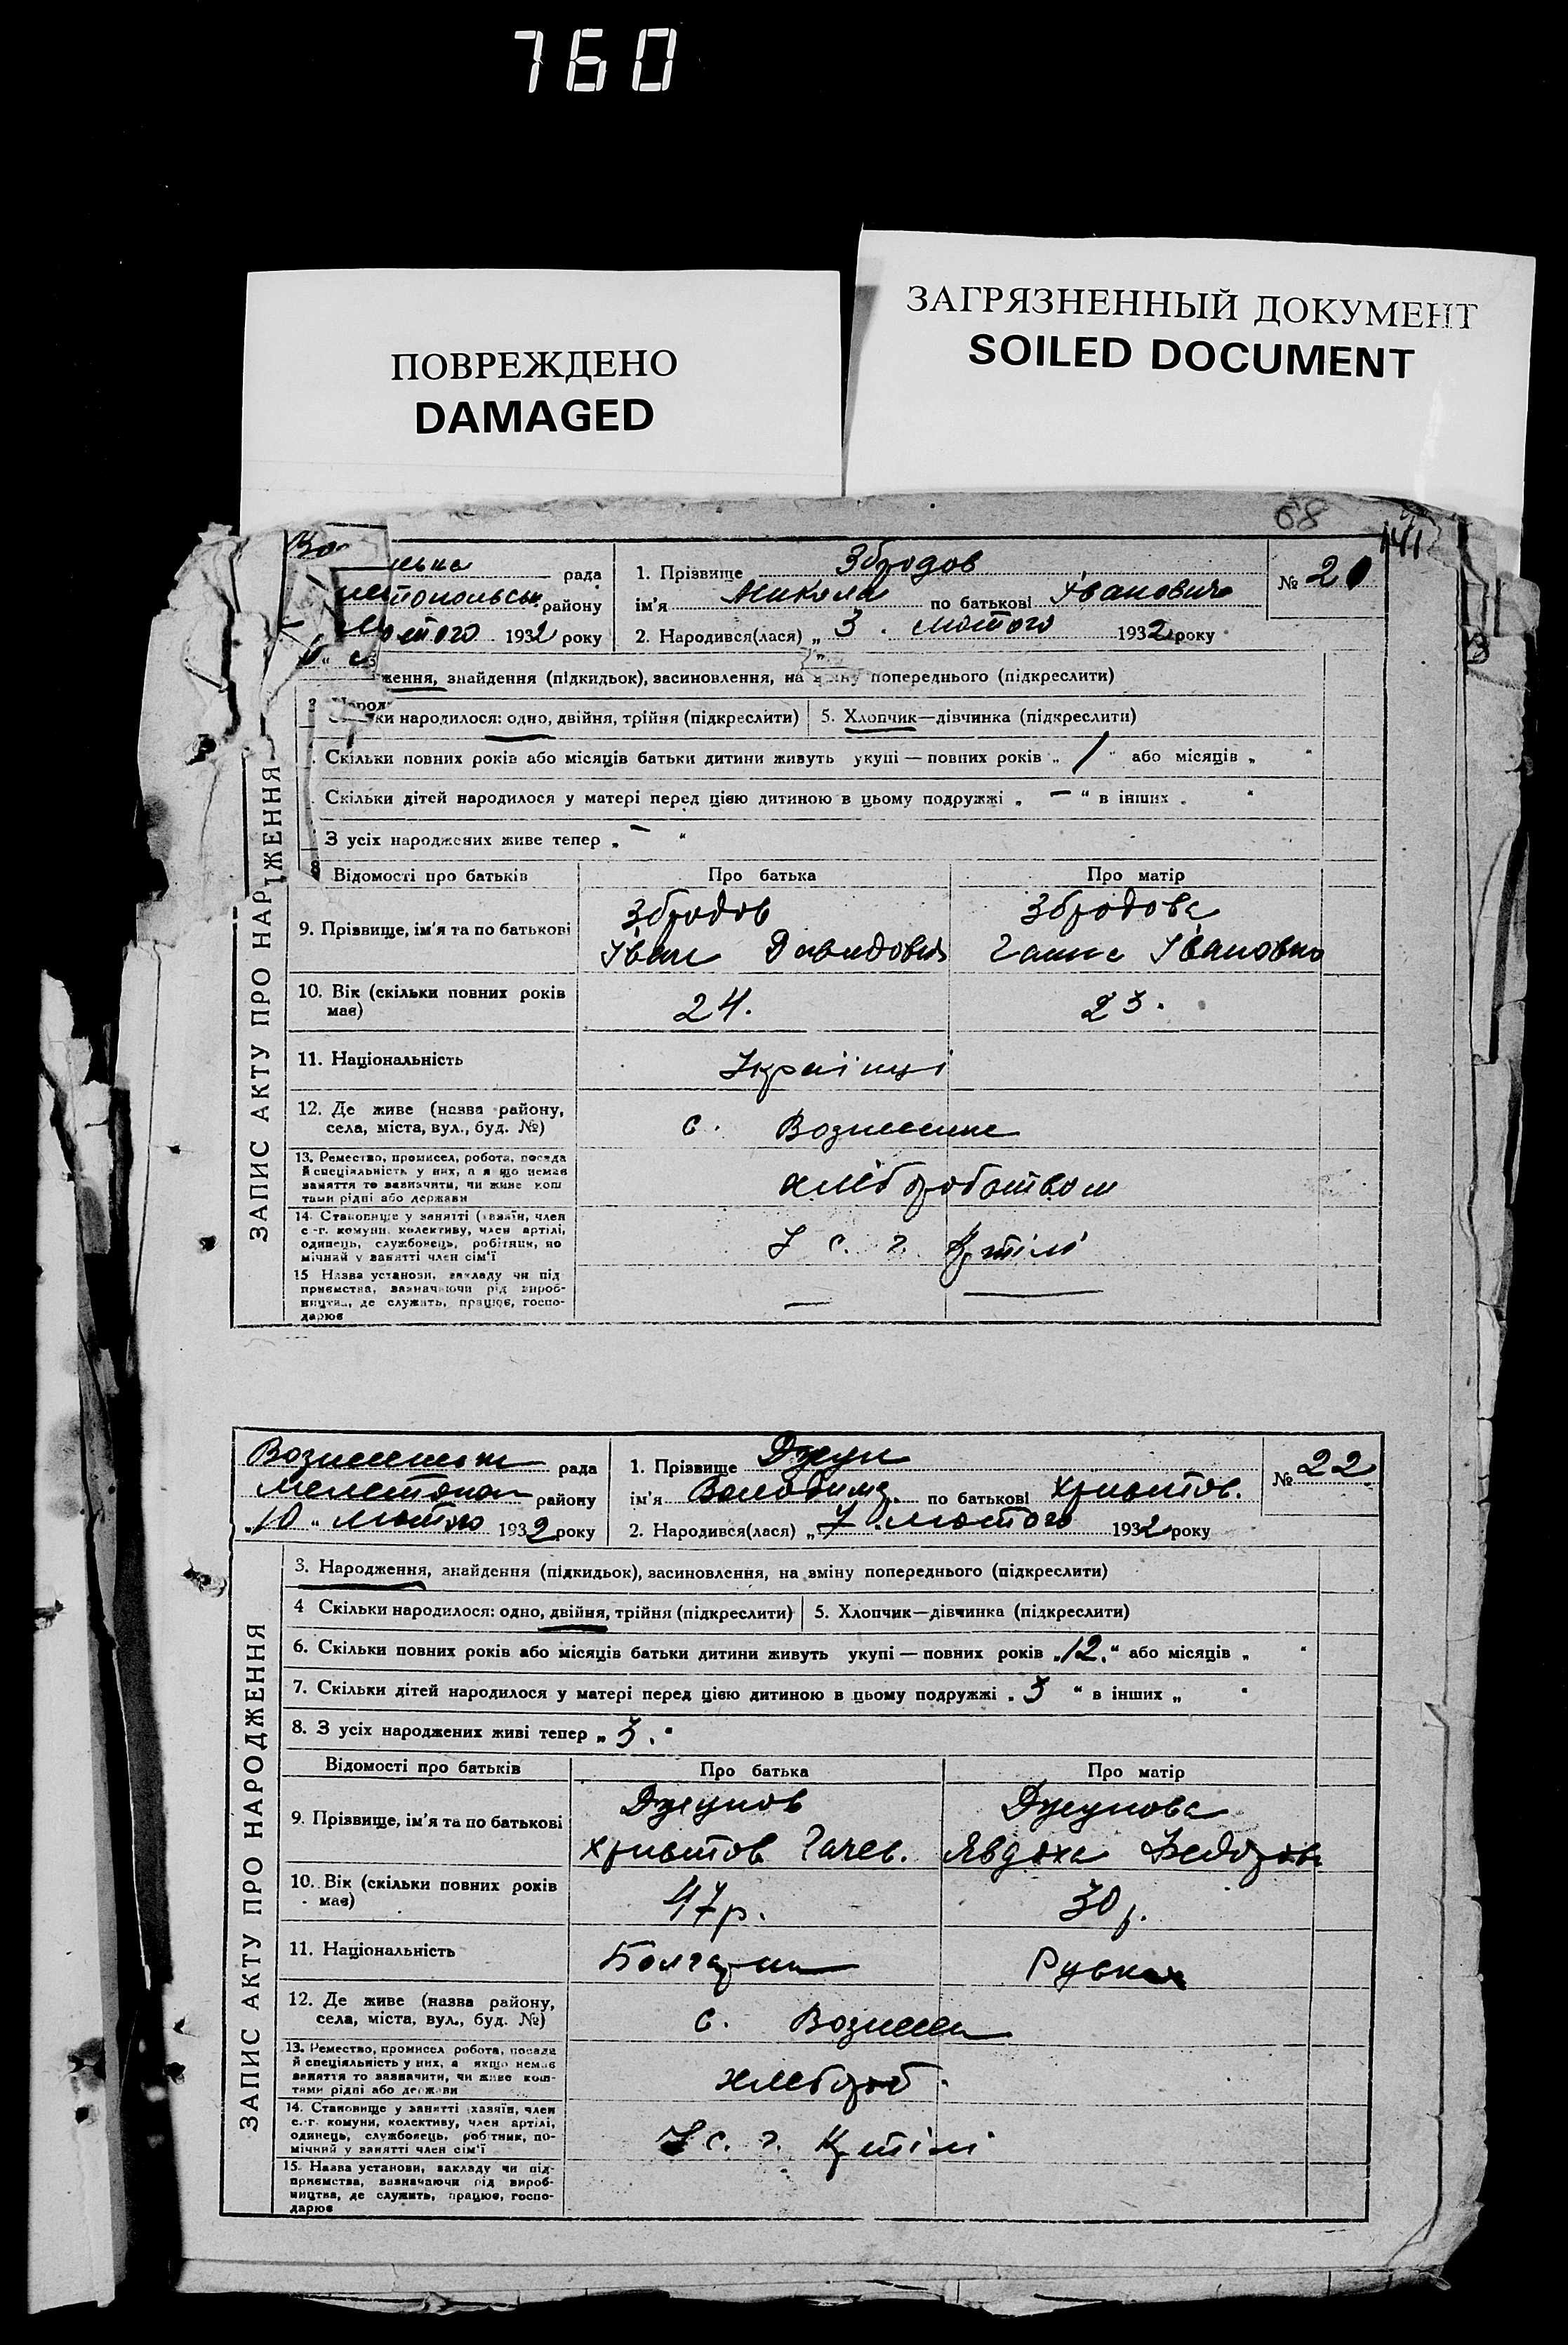 760
ПОВРЕЖДЕНО
DAMAGED
ЗАГРЯЗНЕННЫЙ ДОКУМЕНТ
SOILED DOCUMENT
68
141
рада
району
лютого 1932 року
1. Прізвище Збродов
ім'я Микола по батькові Іванович
2. Народився(лася) „ 3 . лютого 1932 року
№ 21
ження, знайдення (підкидьок), засиновлення, на зміну попереднього (підкреслити)
ки народилося: одно, двійня, трійня (підкреслити) 5. Хлопчик—дівчинка (підкреслити)
Скільки повних років або місяців батьки дитини живуть укупі — повних років „ 1 " або місяців „ "
Скільки дітей народилося у матері перед цією дитиною в цьому подружжі „ — " в інших „ "
З усіх народжених живе тепер „ — "
Відомості про батьків Про батька Про матір
9. Прізвище, ім'я та по батькові Збродов Збродова
Іван Давидович Ганна Івановна
10. Вік (скільки повних років має) 24. 23.
11. Національність Українці
12. Де живе (назва району,
села, міста, вул., буд. №) с.
13. Ремество, промисел, робота, посада
й спеціяльність у них, а я що немає
заняття то зазначити, чи живе кош
тами рідні або держави
хліборобством
14. Становище у занятті (хазяїн, член
с.-г. комуни, колективу, член артілі,
одинець, службовець, робітник, по
мічний у занятті член сім'ї
У с. г. Артілі
15 Назва установи, закладу чи під
приємства, зазначаючи рід вироб-
ництва, де служить, працює, госпо-
дарює
— —
ЗАПИС АКТУ ПРО НАР ЖЕННЯ
рада
району
„10" лютого 1932 року
1. Прізвище Джун
ім'я Володимир по батькові Христов.
2. Народився(лася) „ 7 . лютого 1932 року
№ 22
3. Народження, знайдення (підкидьок), засиновлення, на зміну попереднього (підкреслити)
4 Скільки народилося: одно, двійня, трійня (підкреслити) 5. Хлопчик—дівчинка (підкреслити)
6. Скільки повних років або місяців батьки дитини живуть укупі — повних років „12." або місяців „ "
7. Скільки дітей народилося у матері перед цією дитиною в цьому подружжі „ 3 " в інших „ "
8. З усіх народжених живі тепер „ 3. "
Відомості про батьків Про батька Про матір
9. Прізвище, ім'я та по батькові Джунов Джунова
Христов Явдоха Федоров
10. Вік (скільки повних років має) 47 р. 30 р.
11. Національність Болгарин Руская
12. Де живе (назва району,
села, міста, вул., буд. №) с. Вознесен
13. Ремество, промисел робота, посада
й спеціяльність у них, а якщо немає
заняття то зазначити, чи живе кош-
тами рідні або держави
хлебороб.
14. Становище у занятті хазяїн, член
с.-г. комуни, колективу, член артілі,
одинець, службовець, роб тник, по-
мічний у занятті член сім'ї
У с. г. Артілі
15. Назва установи, закладу чи під-
приємства, зазначаючи рід вироб-
ництва, де служить, працює, госпо-
дарює
ЗАПИС АКТУ ПРО НАРОДЖЕННЯ